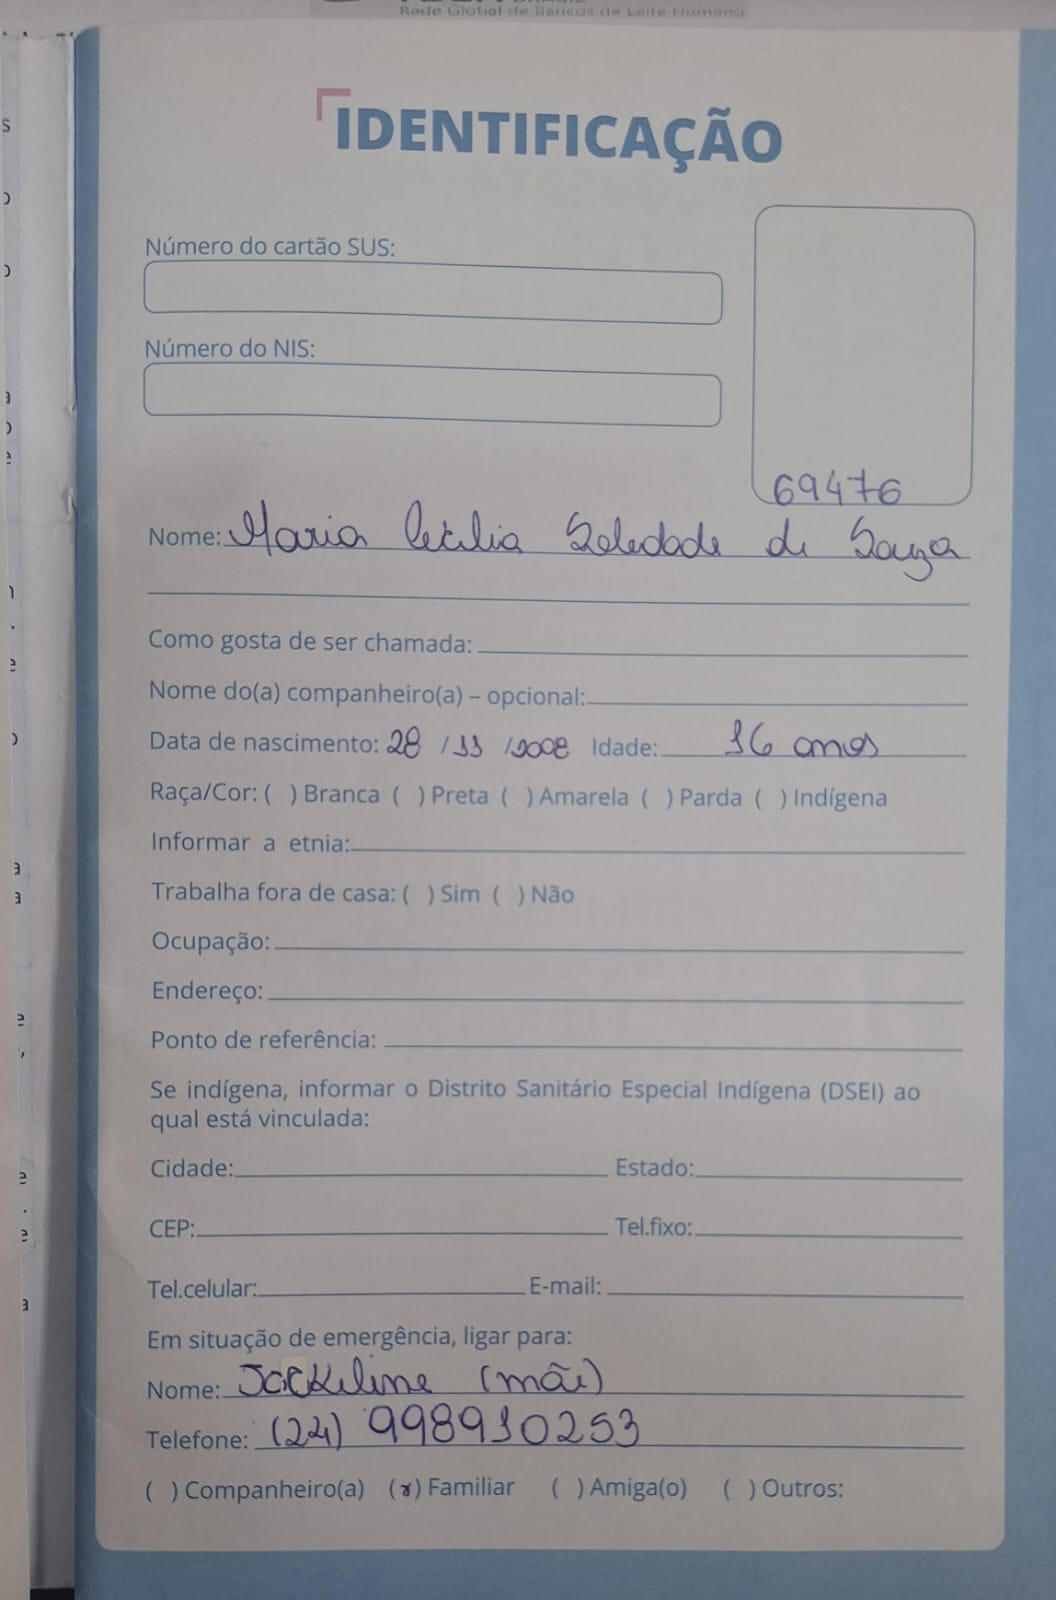 Rede Global de Bancos de Leite Humano
IDENTIFICAÇÃO
Número do cartão SUS:
Número do NIS:
69476
Nome: Maria Cecilia Soledade de Souza
Como gosta de ser chamada:
Nome do(a) companheiro(a) – opcional:
Data de nascimento: 28 / 11 / 2008 Idade: 16 anos
Raça/Cor: ( ) Branca ( ) Preta ( ) Amarela ( ) Parda ( ) Indígena
Informar a etnia:
Trabalha fora de casa: ( ) Sim ( ) Não
Ocupação:
Endereço:
Ponto de referência:
Se indígena, informar o Distrito Sanitário Especial Indígena (DSEI) ao
qual está vinculada:
Cidade: Estado:
CEP: Tel.fixo:
Tel.celular: E-mail:
Em situação de emergência, ligar para:
Nome: Jackeline (mãe)
Telefone: (24) 998910253
( ) Companheiro(a) (x) Familiar ( ) Amiga(o) ( ) Outros: